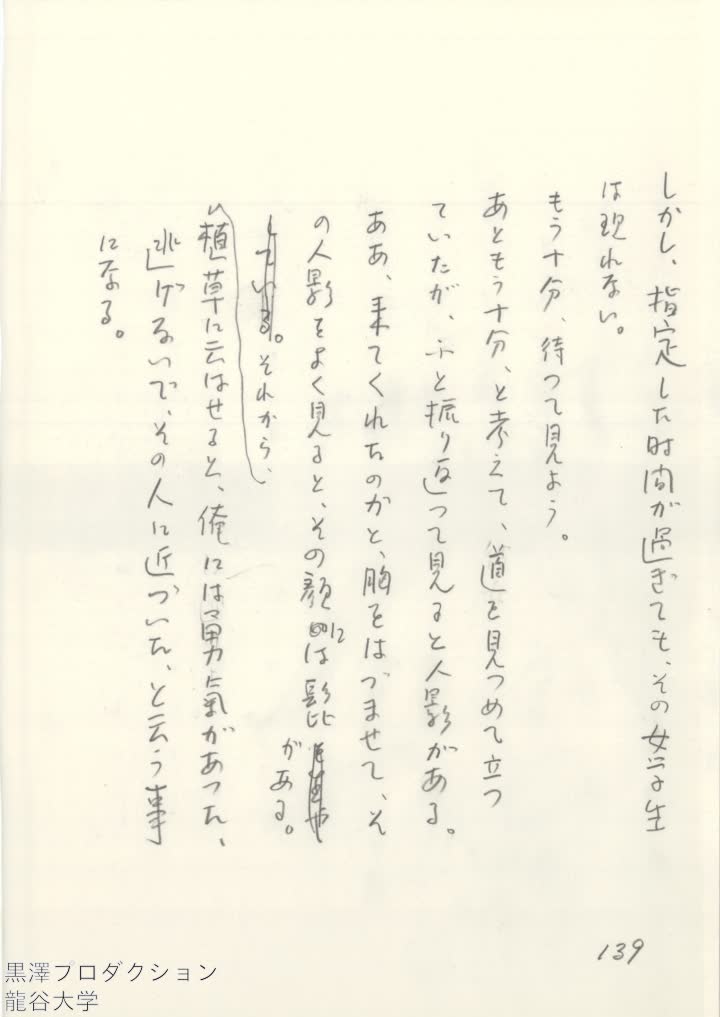 しかし、指定した時間が過ぎても、その女学生
は現れない。
もう十分、待つて見よう。
あともう十分、と考えて、道を見つめて立つ
ていたが、ふと振り返つて見ると人影がある。
ああ、来てくれたのかと、胸をはづませて、そ
の人影をよく見ると、その顔には髭
がある。
している。それから、
植草に云はせると、俺には勇氣があつた、
逃げないで、その人に近づいた、と云う事
になる。
139
黒澤プロダクション
龍谷大学